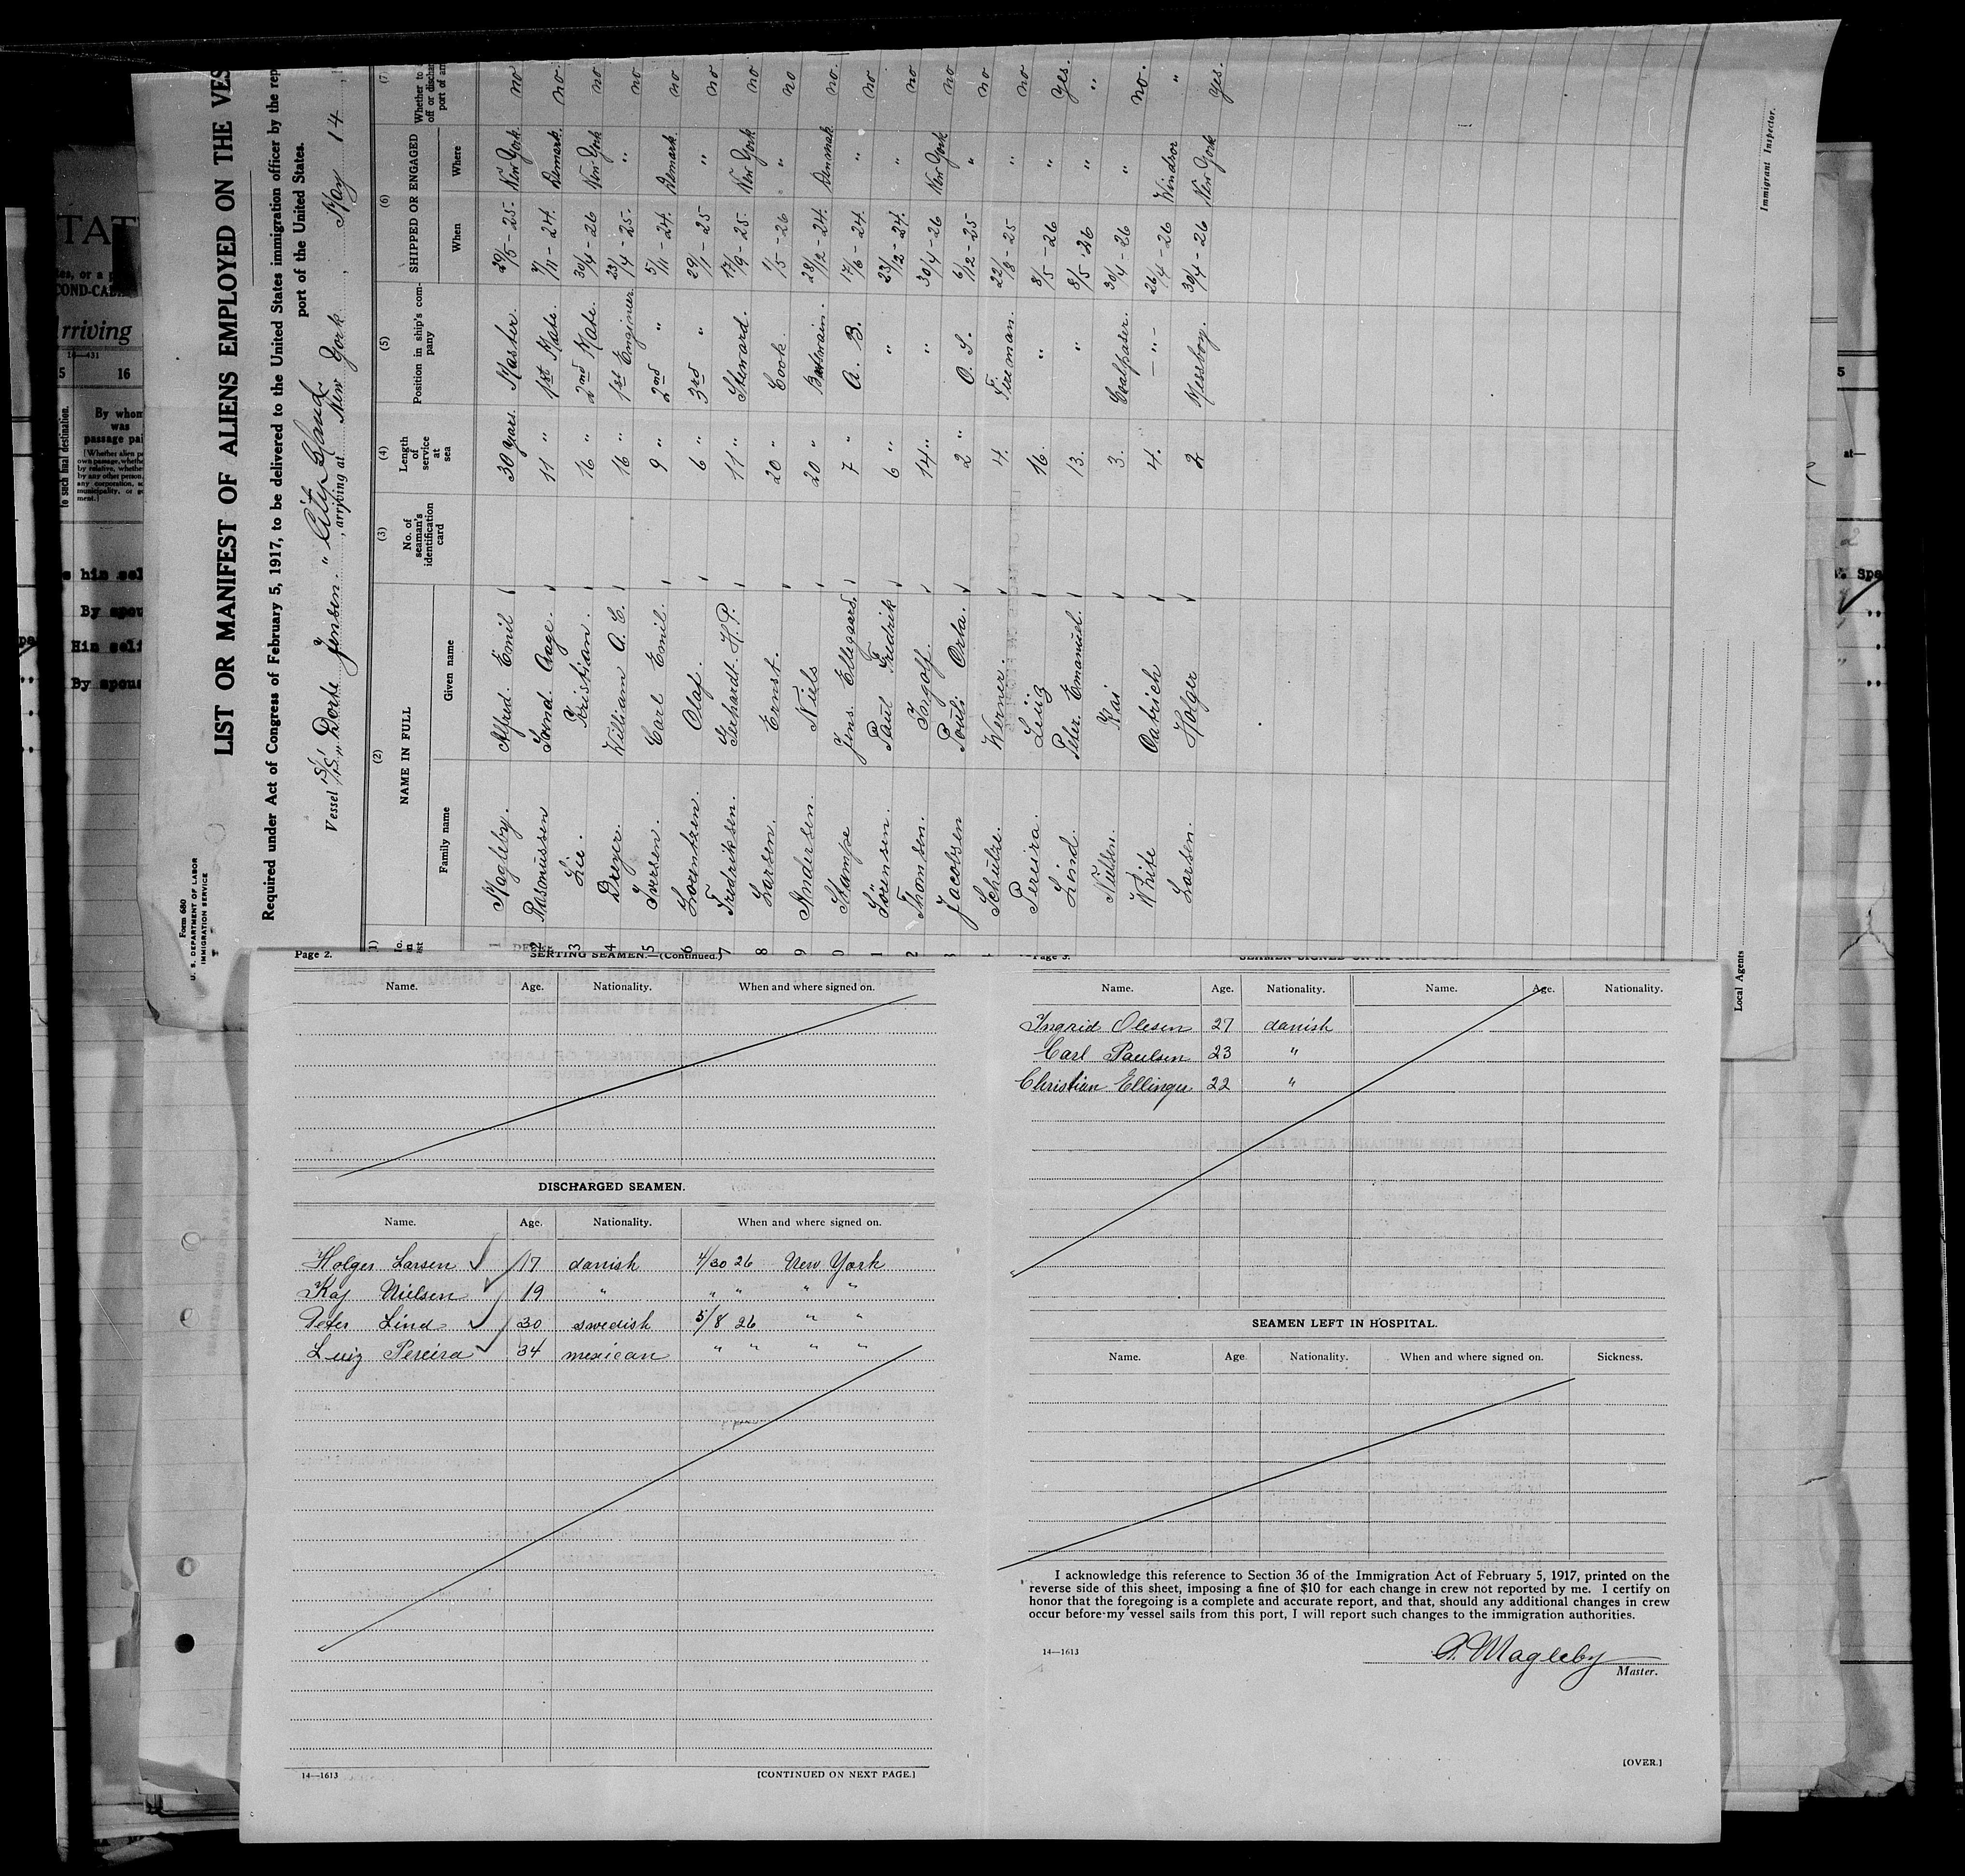 Form 680
U. S. DEPARTMENT OF LABOR
IMMIGRATION SERVICE
LIST OR MANIFEST OF ALIENS EMPLOYED ON THE VES
Required under Act of Congress of February 5, 1917, to be delivered to the United States immigration officer by the rep
port of the United States.
Vessel S/S "Dorte Jensen", arriving at New York, May 14,
(1) (2) (3) (4) (5) (6) (7)
NAME IN FULL No. of seaman's identification card Length of service at sea Position in ship's company SHIPPED OR ENGAGED
Family name Given name When Where
Magleby. Alfred Emil 30 years. Master. 29/5 - 25. New York. no
2 Rasmussen Svend Aage. 11 " 1st Mate. 7/11 - 24. Denmark. no.
3 Lie. Kristian. 16 " 2nd Mate. 30/4 - 26 New York no
4 Dreyer. William A. C. 16 " 1st Engineer 23/4 - 25. " no
5 Iversen. Carl Emil. 9 " 2nd " 5/11 - 24. Denmark. no
6 Lorentzen. Olaf. 6 " 3rd " 29/1 - 25 " no
7 Fredriksen. Gerhardt. H.P. 11 " Steward. 17/9 - 25. New York no
8 Larsen. Ernst. 20 " Cook. 1/5 - 26 " no
9 Andersen. Niels 20 " 28/12 - 24. Denmark no.
0 Stampe Jens. Ellegaard. 7 " A. B. 17/6 - 24. " no
1 Sörensen. Paul Fredrik 6 " " 23/12 - 24. " no
2 Thomsen. Ingolf. 14 " " 30/4 - 26 New York no
3 Jacobsen Pouli Orla. 2 " O. S. 6/12 - 25 " no
Schultze. Werner. 4. Fireman. 22/8 - 25 " no
Pereira. Luiz 16. " 8/5 - 26 " yes.
Lind. Peter. Emanuel. 13. " 8/5 - 26 " "
Nielsen. Kai 3. Coalpasser. 30/4 - 26 " no.
White 4. - " - 26/4 - 26 Windsor "
Larsen. Holger 2 Messboy. 30/4 - 26 New York yes.
Immigrant Inspector.
Local Agents
Page 2. SERTING SEAMEN.—(Continued.)
Name. Age. Nationality. When and where signed on.
DISCHARGED SEAMEN.
Name. Age. Nationality. When and where signed on.
Holger Larsen 17 danish 4/30 26 New York
Kaj Nielsen 19 " " " " "
Peter Lind 30 swedish 5/8 26 " "
Luiz Pereira 34 mexican " " " "
14—1613 [CONTINUED ON NEXT PAGE.]
Page 3.
Name. Age. Nationality. Name. Age. Nationality.
Ingrid Olesen 27 danish
Carl Paulsen 23 "
Christian Ellinger 22 "
SEAMEN LEFT IN HOSPITAL.
Name. Age Nationality. When and where signed on. Sickness.
I acknowledge this reference to Section 36 of the Immigration Act of February 5, 1917, printed on the
reverse side of this sheet, imposing a fine of $10 for each change in crew not reported by me. I certify on
honor that the foregoing is a complete and accurate report, and that, should any additional changes in crew
occur before my vessel sails from this port, I will report such changes to the immigration authorities.
A. Magleby
14—1613 Master.
[OVER.]